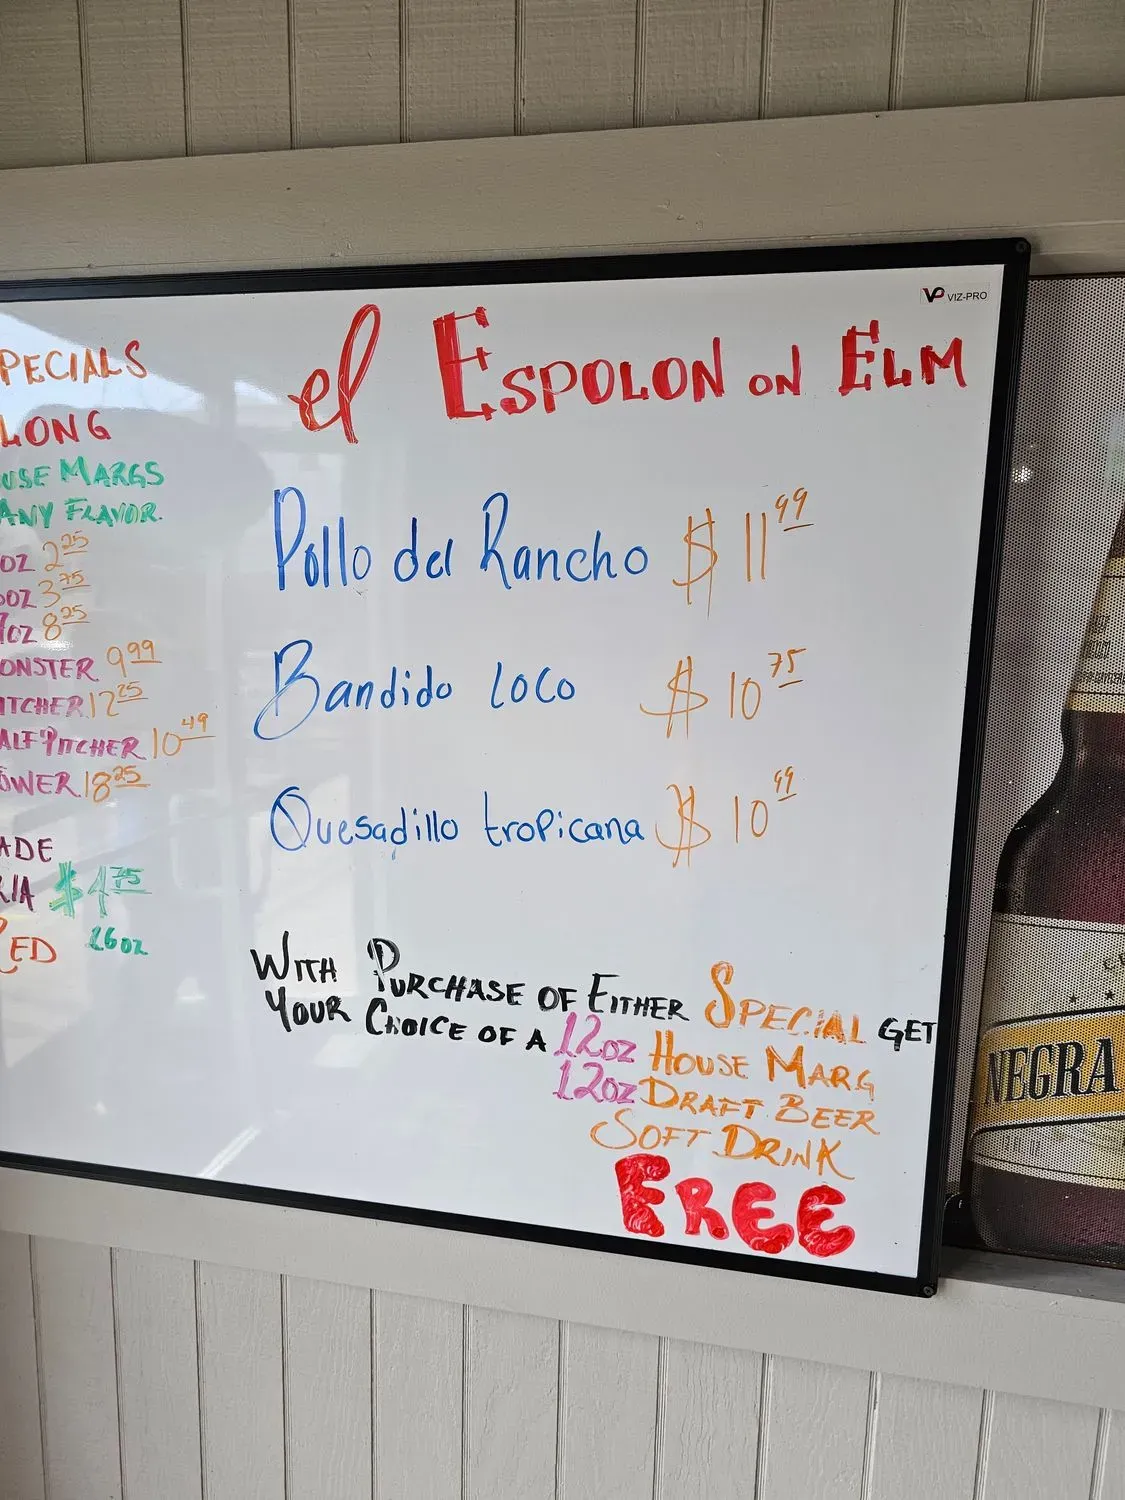 VP VIZ-PRO
PECIALS
LONG
USE MARGS
ANY FLAVOR.
OZ 2.25
OZ 3.75
7OZ 8.25
ONSTER 9.99
ITCHER 12.25
ALF PITCHER 10.49
OWER 18.25
ADE
RIA $4.75
RED 16oz
el ESPOLON ON ELM
Pollo del Rancho $11.99
Bandido loco $10.75
Quesadillo tropicana $10.99
WITH PURCHASE OF EITHER SPECIAL GET
YOUR CHOICE OF A 12oz HOUSE MARG
12oz DRAFT BEER
SOFT DRINK
FREE
NEGRA